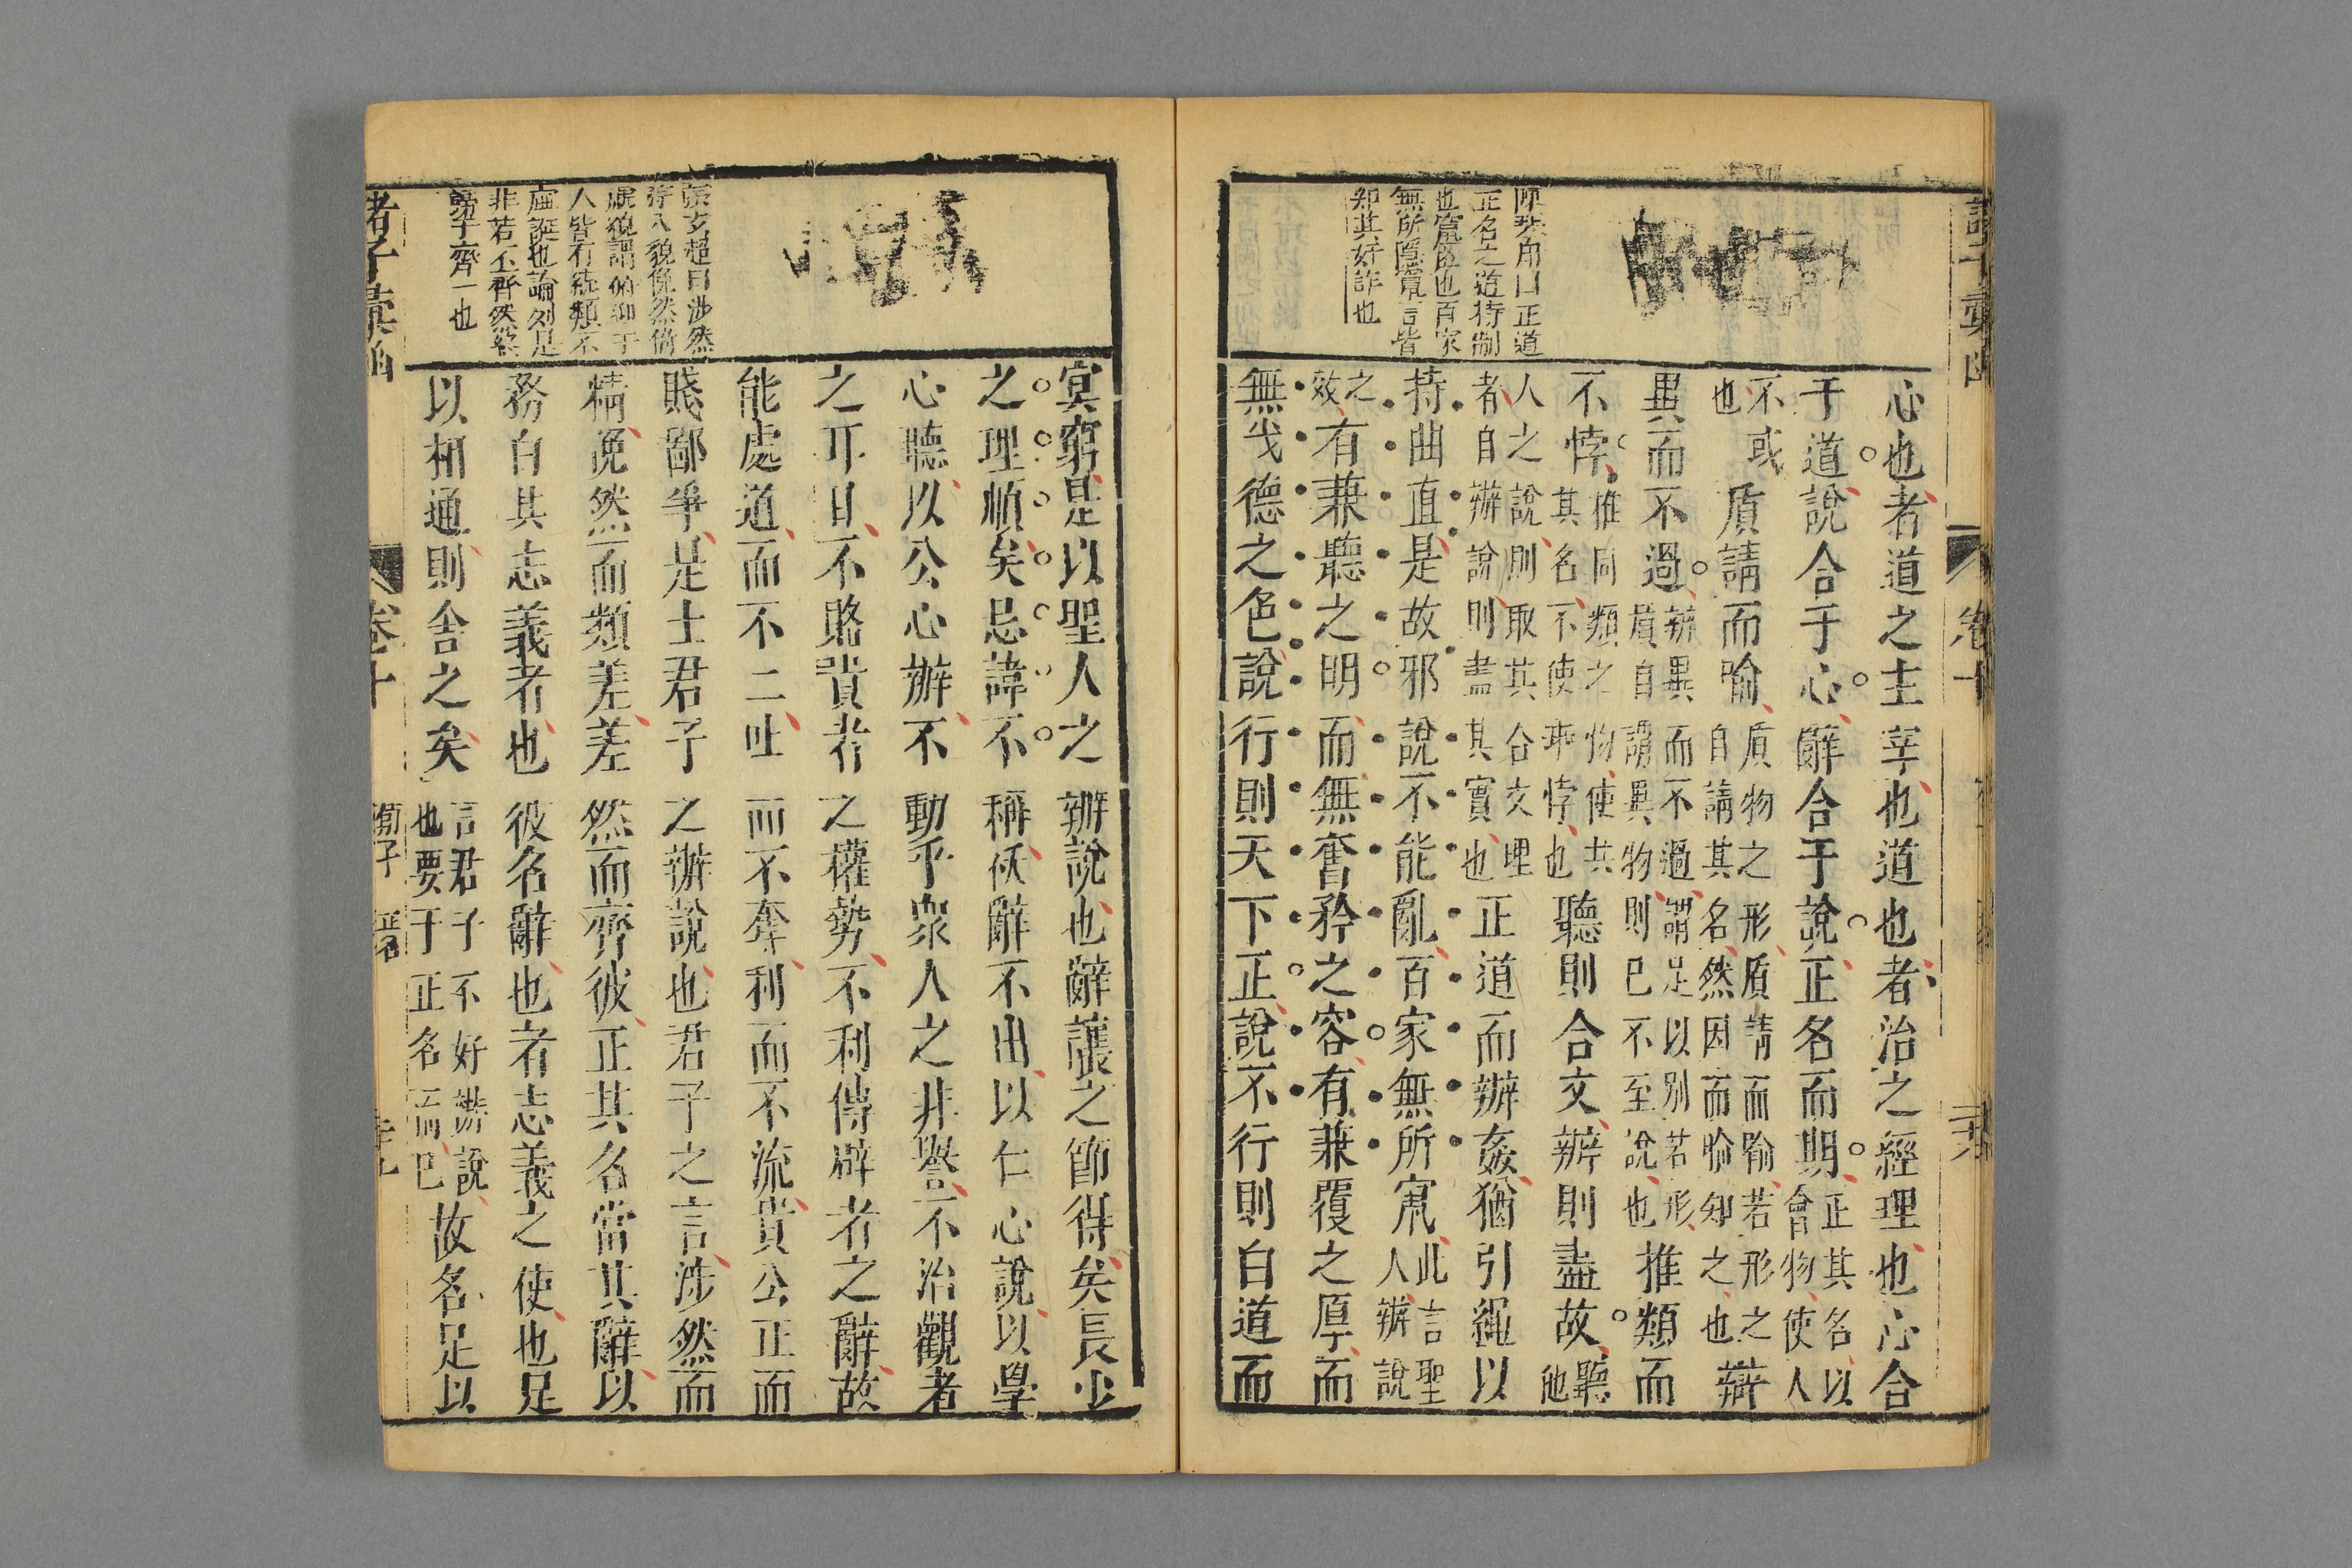 心也者道之主宰也道也者治之經理也心合
于道說合于心辭合于說正名而期正其名以會物使人
不或也質請而喻質物之形質請而喻若形之自請其名然因而喻知之也辯
異而不過辨異而不過謂足以別若形質自謂異物則已不至說也推類而
不悖推同類之物使共其名不使乖悖也聽則合文辨則盡故聽他
人之說則取其合文理者自辨說則盡其實也正道而辨姦猶引繩以
持曲直是故邪說不能亂百家無所竄此言聖人辨說
之效有兼聽之明而無奮矜之容有兼覆之厚而
無伐德之色說行則天下正說不行則白道而
正道
正名之道持制
也竄匿也百家
無所隱竄言皆
知其奸詐也
卷十
冥窮是以聖人之辨說也辭讓之節得矣長少
之理順矣忌諱不稱祅辭不出以仁心說以學
心聽以公心辨不動乎衆人之非譽不治觀者
之耳目不賂貴者之權勢不利傳辟者之辭故
能處道而不二吐而不奪利而不流貴公正而
賤鄙爭是士君子之辨說也君子之言涉然而
精俛然而類差差然而齊彼正其名當其辭以
務白其志義者也彼名辭也者志義之使也足
以相通則舍之矣言君子不好辨說也要于正名而已故名足以
張之超曰涉然
深入貌俛然俯
就貌謂俯仰于
人皆有統類不
虛誕也論列是
非若不齊然終
歸乎齊一也
諸子彙函
卷十
荀子 正名